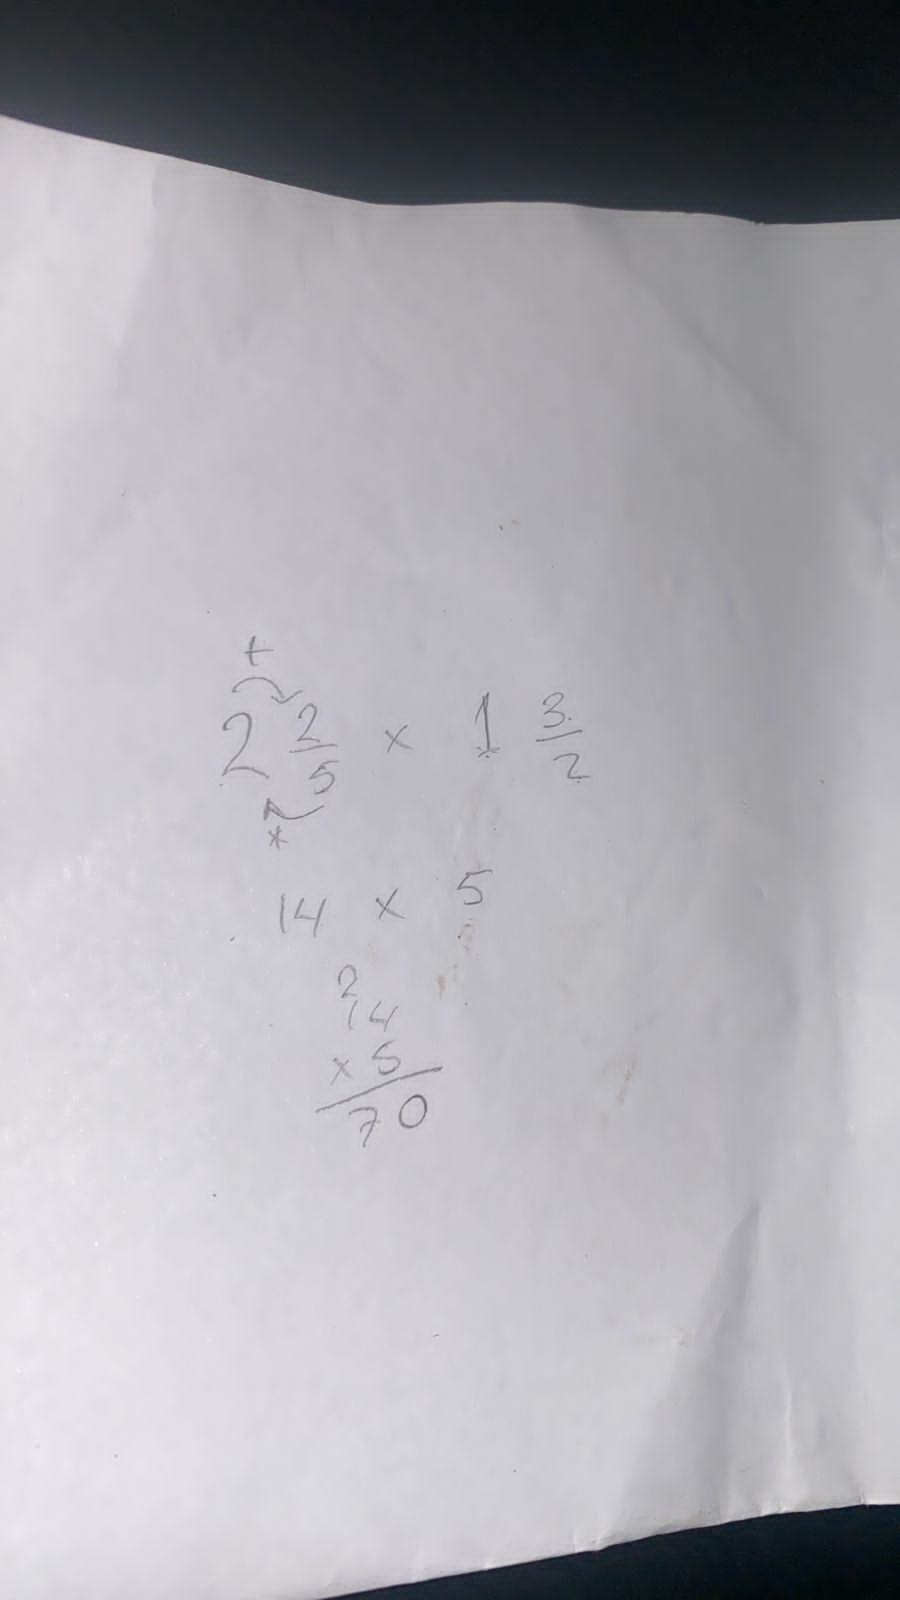 +
2 2/5 × 1 3/2
×
14 × 5
2
14
× 5
70